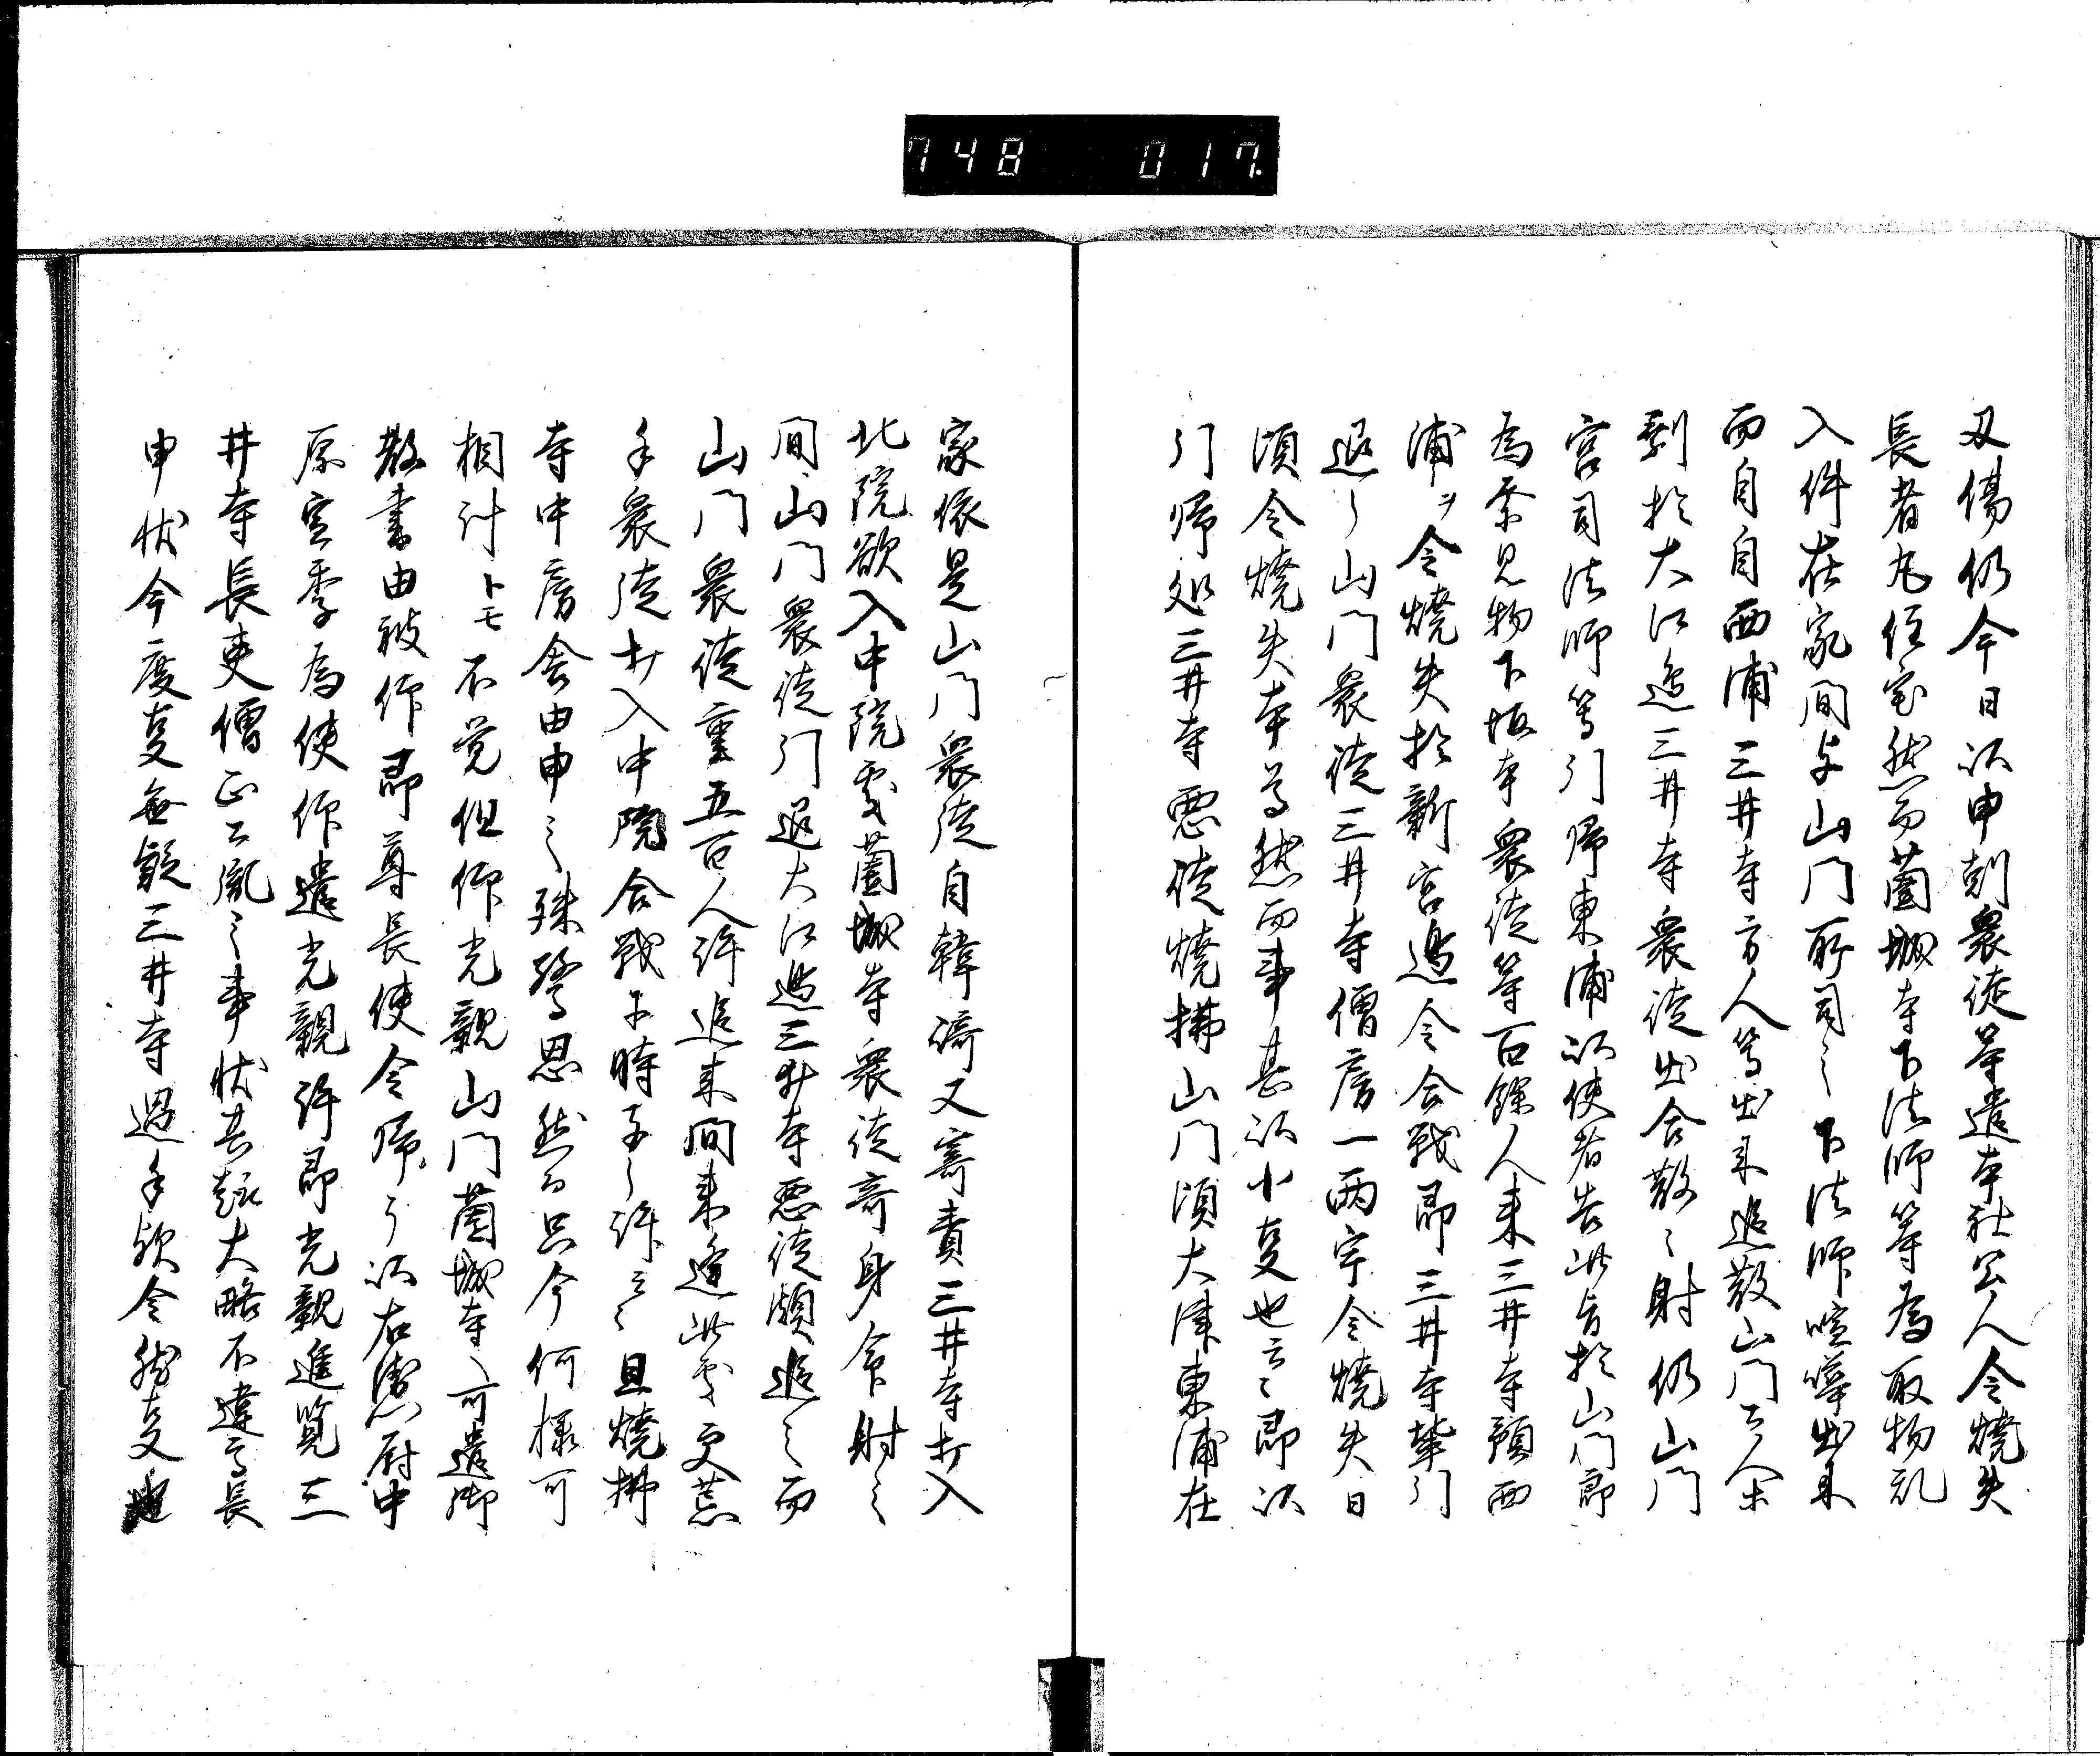 748 017.
刄傷仍今日以申剋衆徒等遣本社公人令焼失
長者丸住宅然而薗城寺下法師等為取物乱
入件在家間与山門所司之下法師喧嘩出来
而自自西浦三井寺方人等出来追散山門公人等
剰於大江辺三井寺衆徒出合散々射仍山門
宮司法師等引帰東浦以使者告此旨於山門即
為奉見物下坂本衆徒等百餘人来三井寺預西
浦ヲ令焼失於新宮辺令合戦即三井寺輩引
退了山門衆徒三井寺僧房一両宇令焼失日
頃令焼失本尊然而事甚以小事也云々即以
引帰処三井寺悪徒焼拂山門領大津東浦在
家依是山門衆徒自韓崎又寄責三井寺打入
北院欲入中院處薗城寺衆徒寄身命射之
間山門衆徒引退大江辺三井寺悪徒頻追之而
山門衆徒重五百人許追来間来逢此處更荒
手衆徒打入中院合戦于時子了許云々且焼拂
寺中房舎由申之殊驚思然而只今何様可
相計トモ不覚但仰光親山門薗城寺々可遣御
教書由被仰即尊長使令帰了以右衛門尉中
原宣季為使仰遣光親許即光親進覧三
井寺長吏僧正公胤之事状其趣大略不違尊長
申状今度事無疑三井寺過手歟令然事也